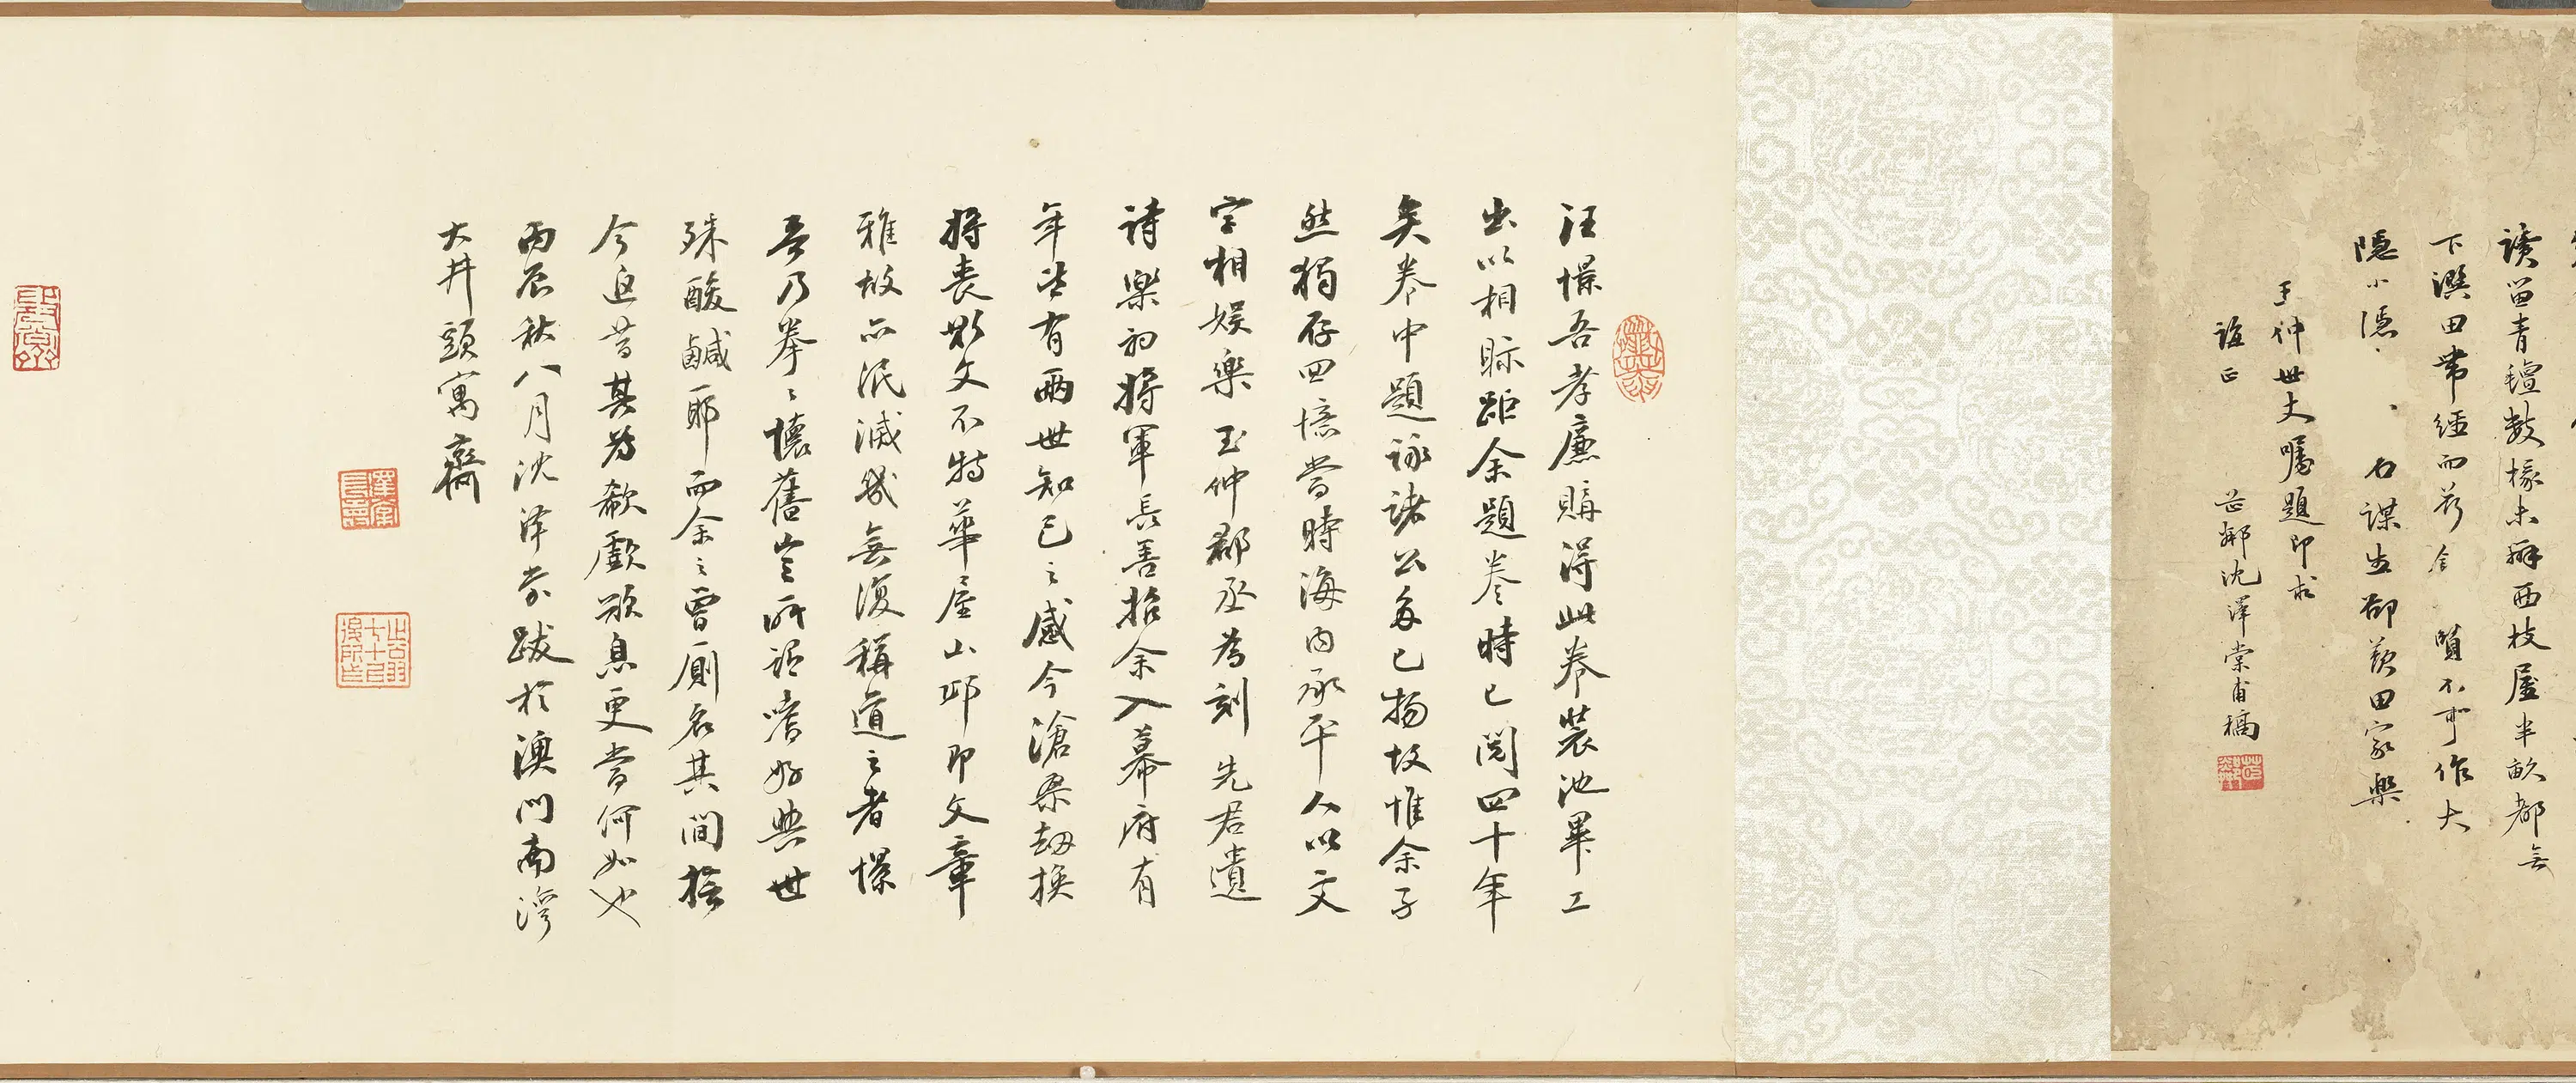 讀畱青氊數椽未辦西枝屋半畝都無
下潠田帶經而
賢不可作大
隱小隱
名謀生卻羨田家樂
玉仲世丈囑題即求
誼正
芷鄰沈澤棠甫稿
汪憬吾孝廉購得此卷裝池畢工
出以相眎距余題卷時已閱四十年
矣卷中題詠諸公多已物故惟余孑
然獨存回憶當時海內承平人以文
字相娛樂玉仲郡丞為刻先君遺
詩樂初將軍長善招余入幕府有
年皆有兩世知己之感今滄桑劫換
將喪斯文不特華屋山邱即文章
雅故亦泯滅幾無復稱道之者憬
吾乃拳拳懷舊豈所謂嗜好與世
殊酸鹹耶而余之曾廁名其間撫
今追昔其為欷歔歎息更當何如也
丙辰秋八月沈澤棠跋於澳門南灣
大井頭寓齋